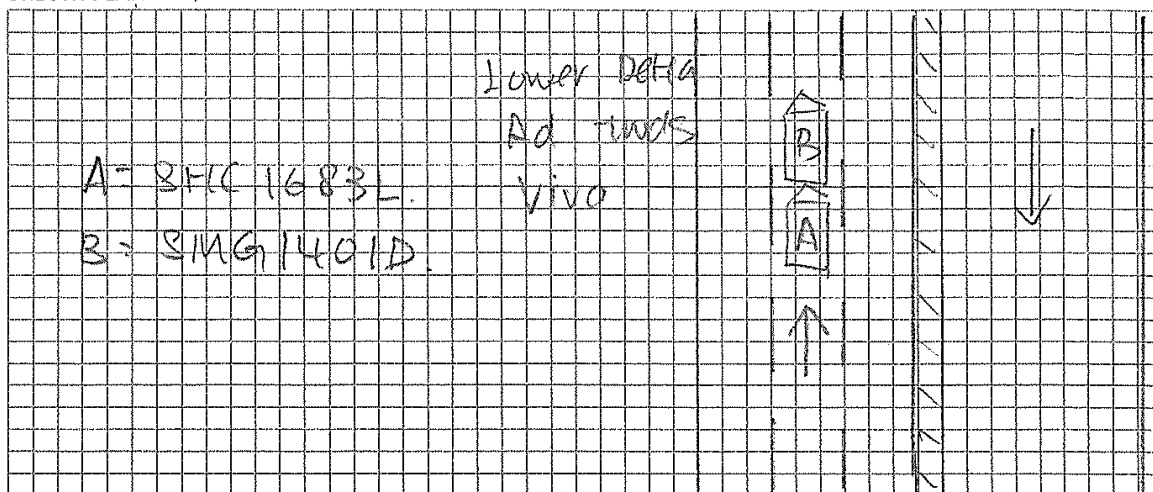 Lower Delta
Rd twds
Vivo
A = SHC 1683L.
B = SMG1401D.
B
A